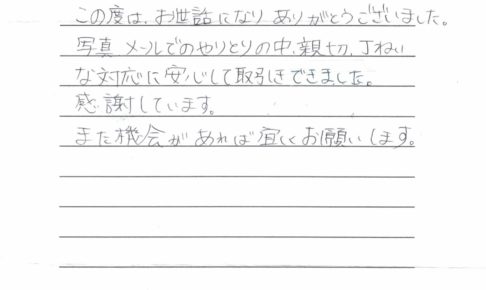 この度は、お世話になりありがとうございました。
写真 メールでのやりとりの中、親切、丁ねい
な対応に安心して取引きできました。
感謝しています。
また機会があれば宜しくお願いします。